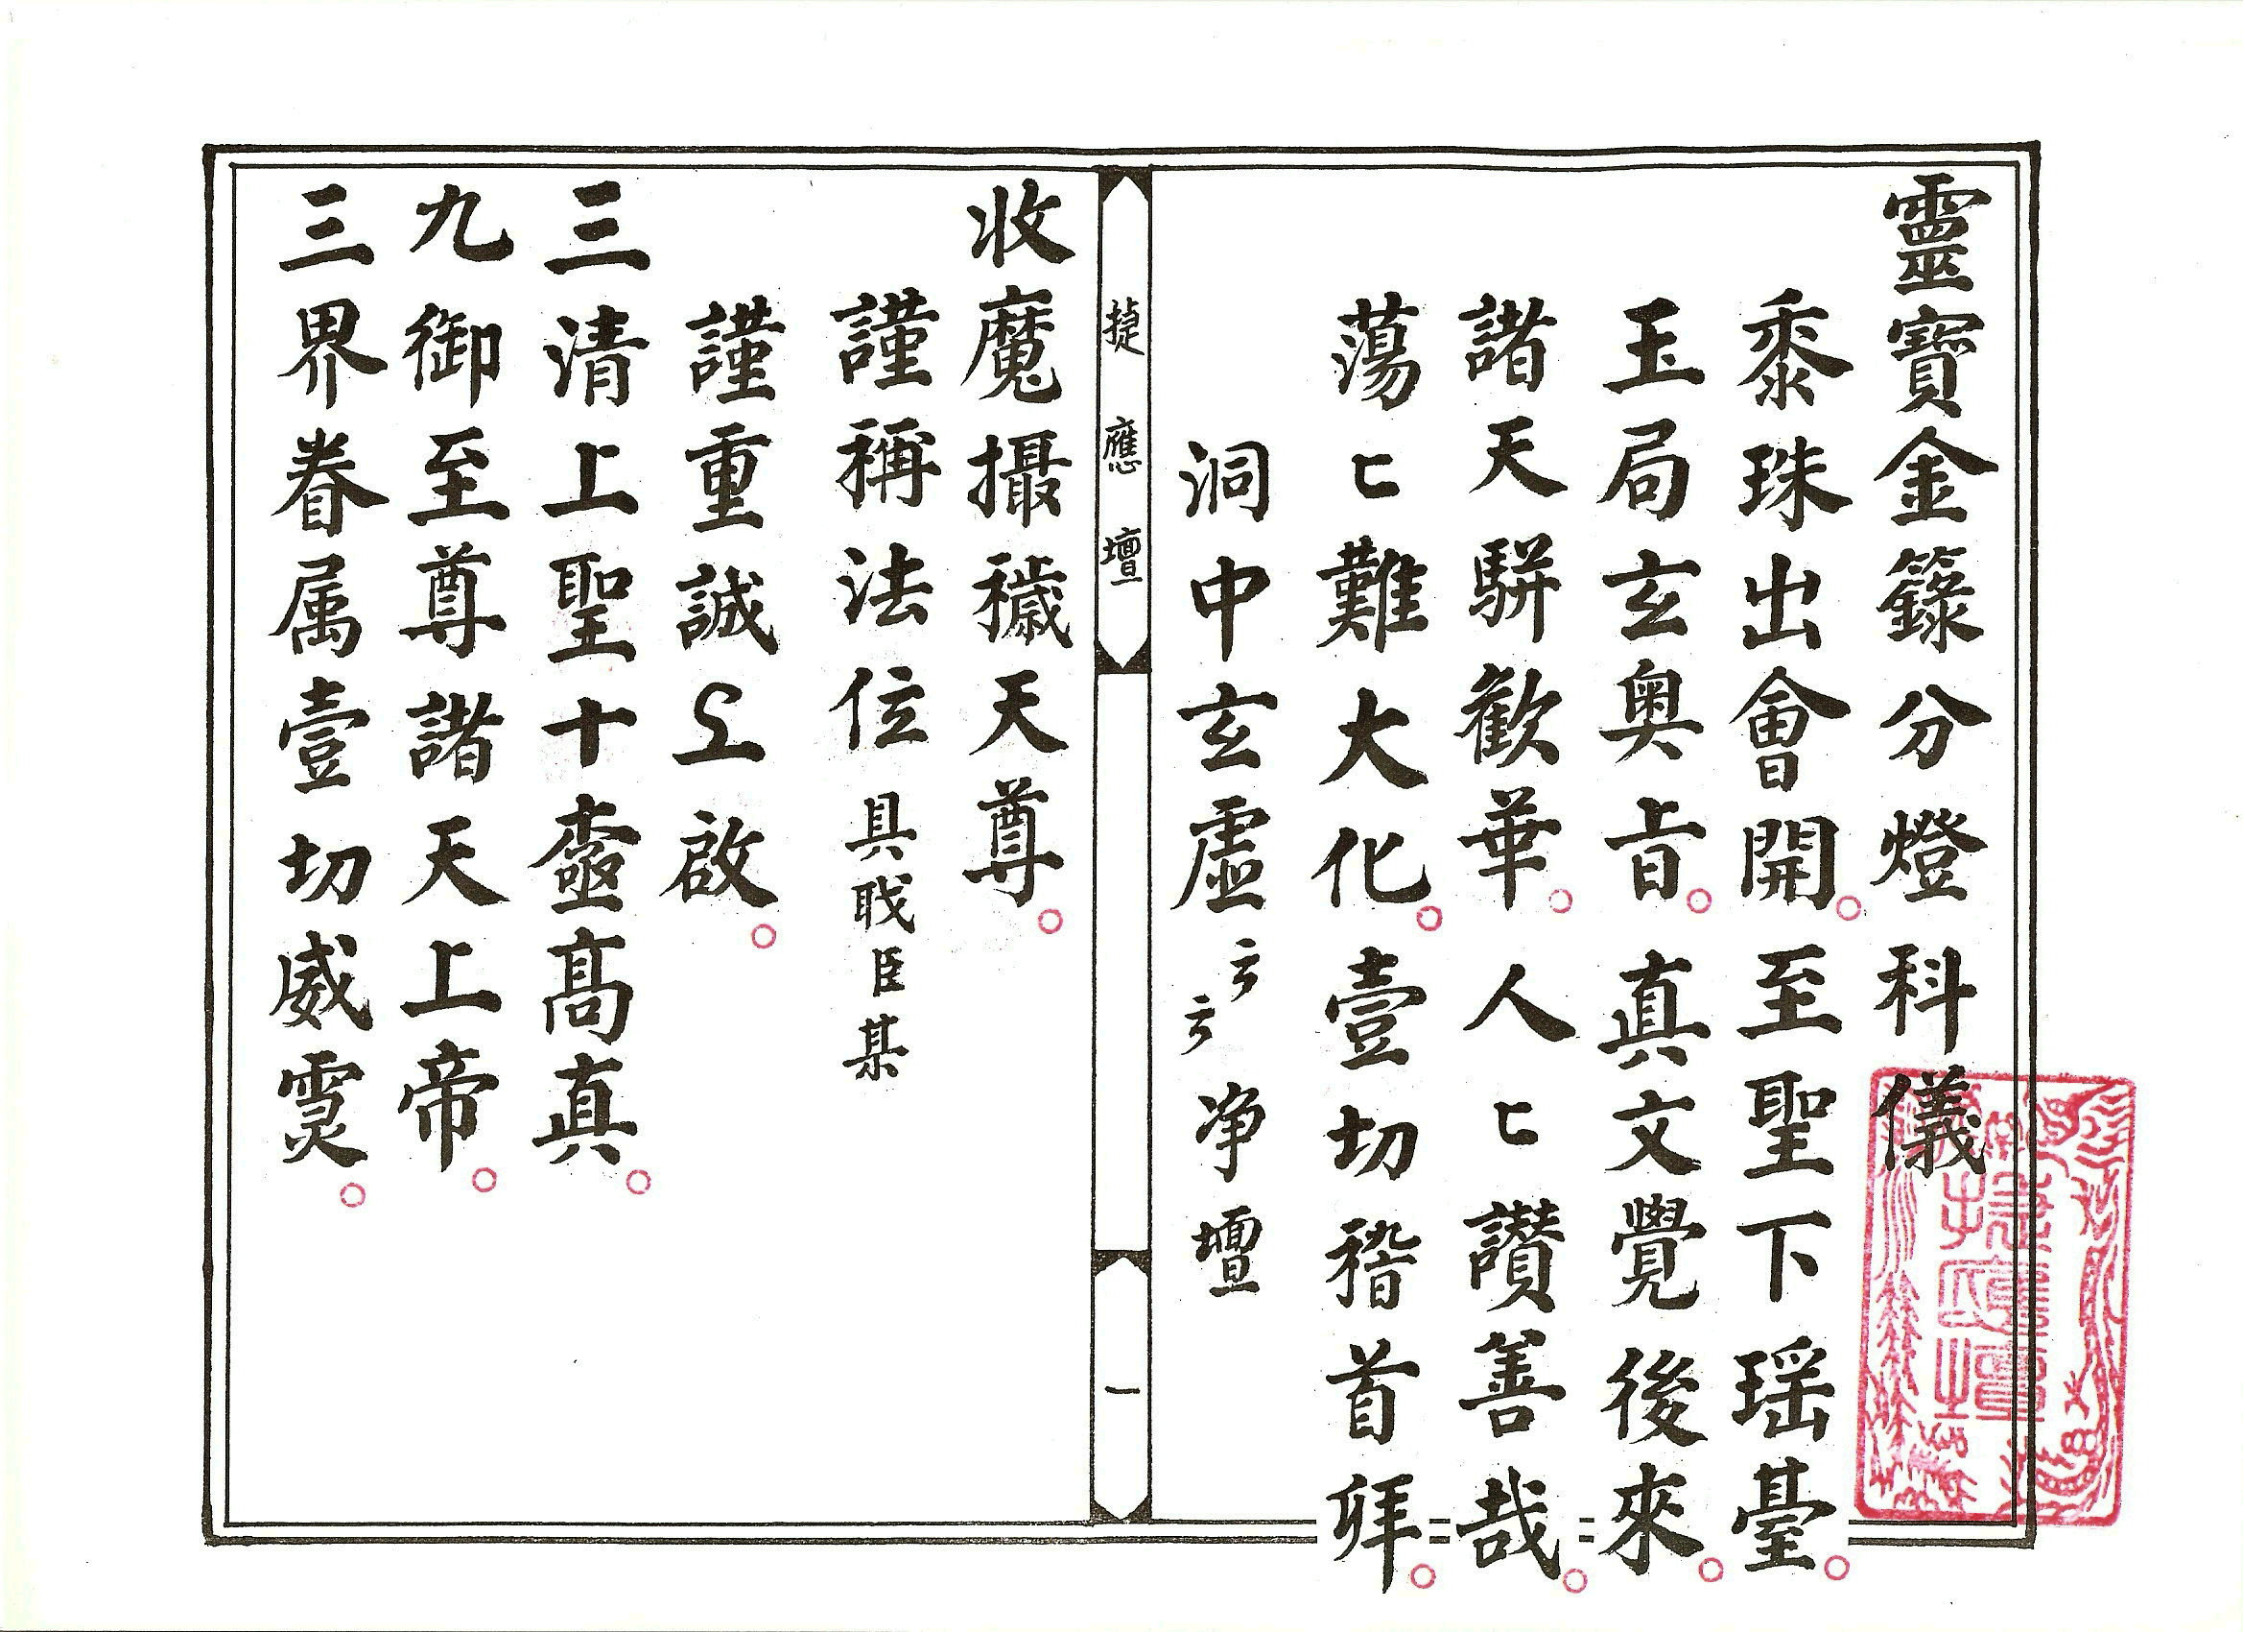 靈寶金籙分燈科儀
黍珠出會開。至聖下瑶臺。
玉局玄奥旨。真文覺後來。
諸天駢歡華。人〻讃善哉。
蕩〻難大化。壹切稽首拜。
洞中玄虛云云净壇
捷應壇
一
收魔攝穢天尊。
謹稱法位具職臣某
謹重誠上啟。
三清上聖十極高真。
九御至尊諸天上帝。
三界眷属壹切威灵。
捷應壇